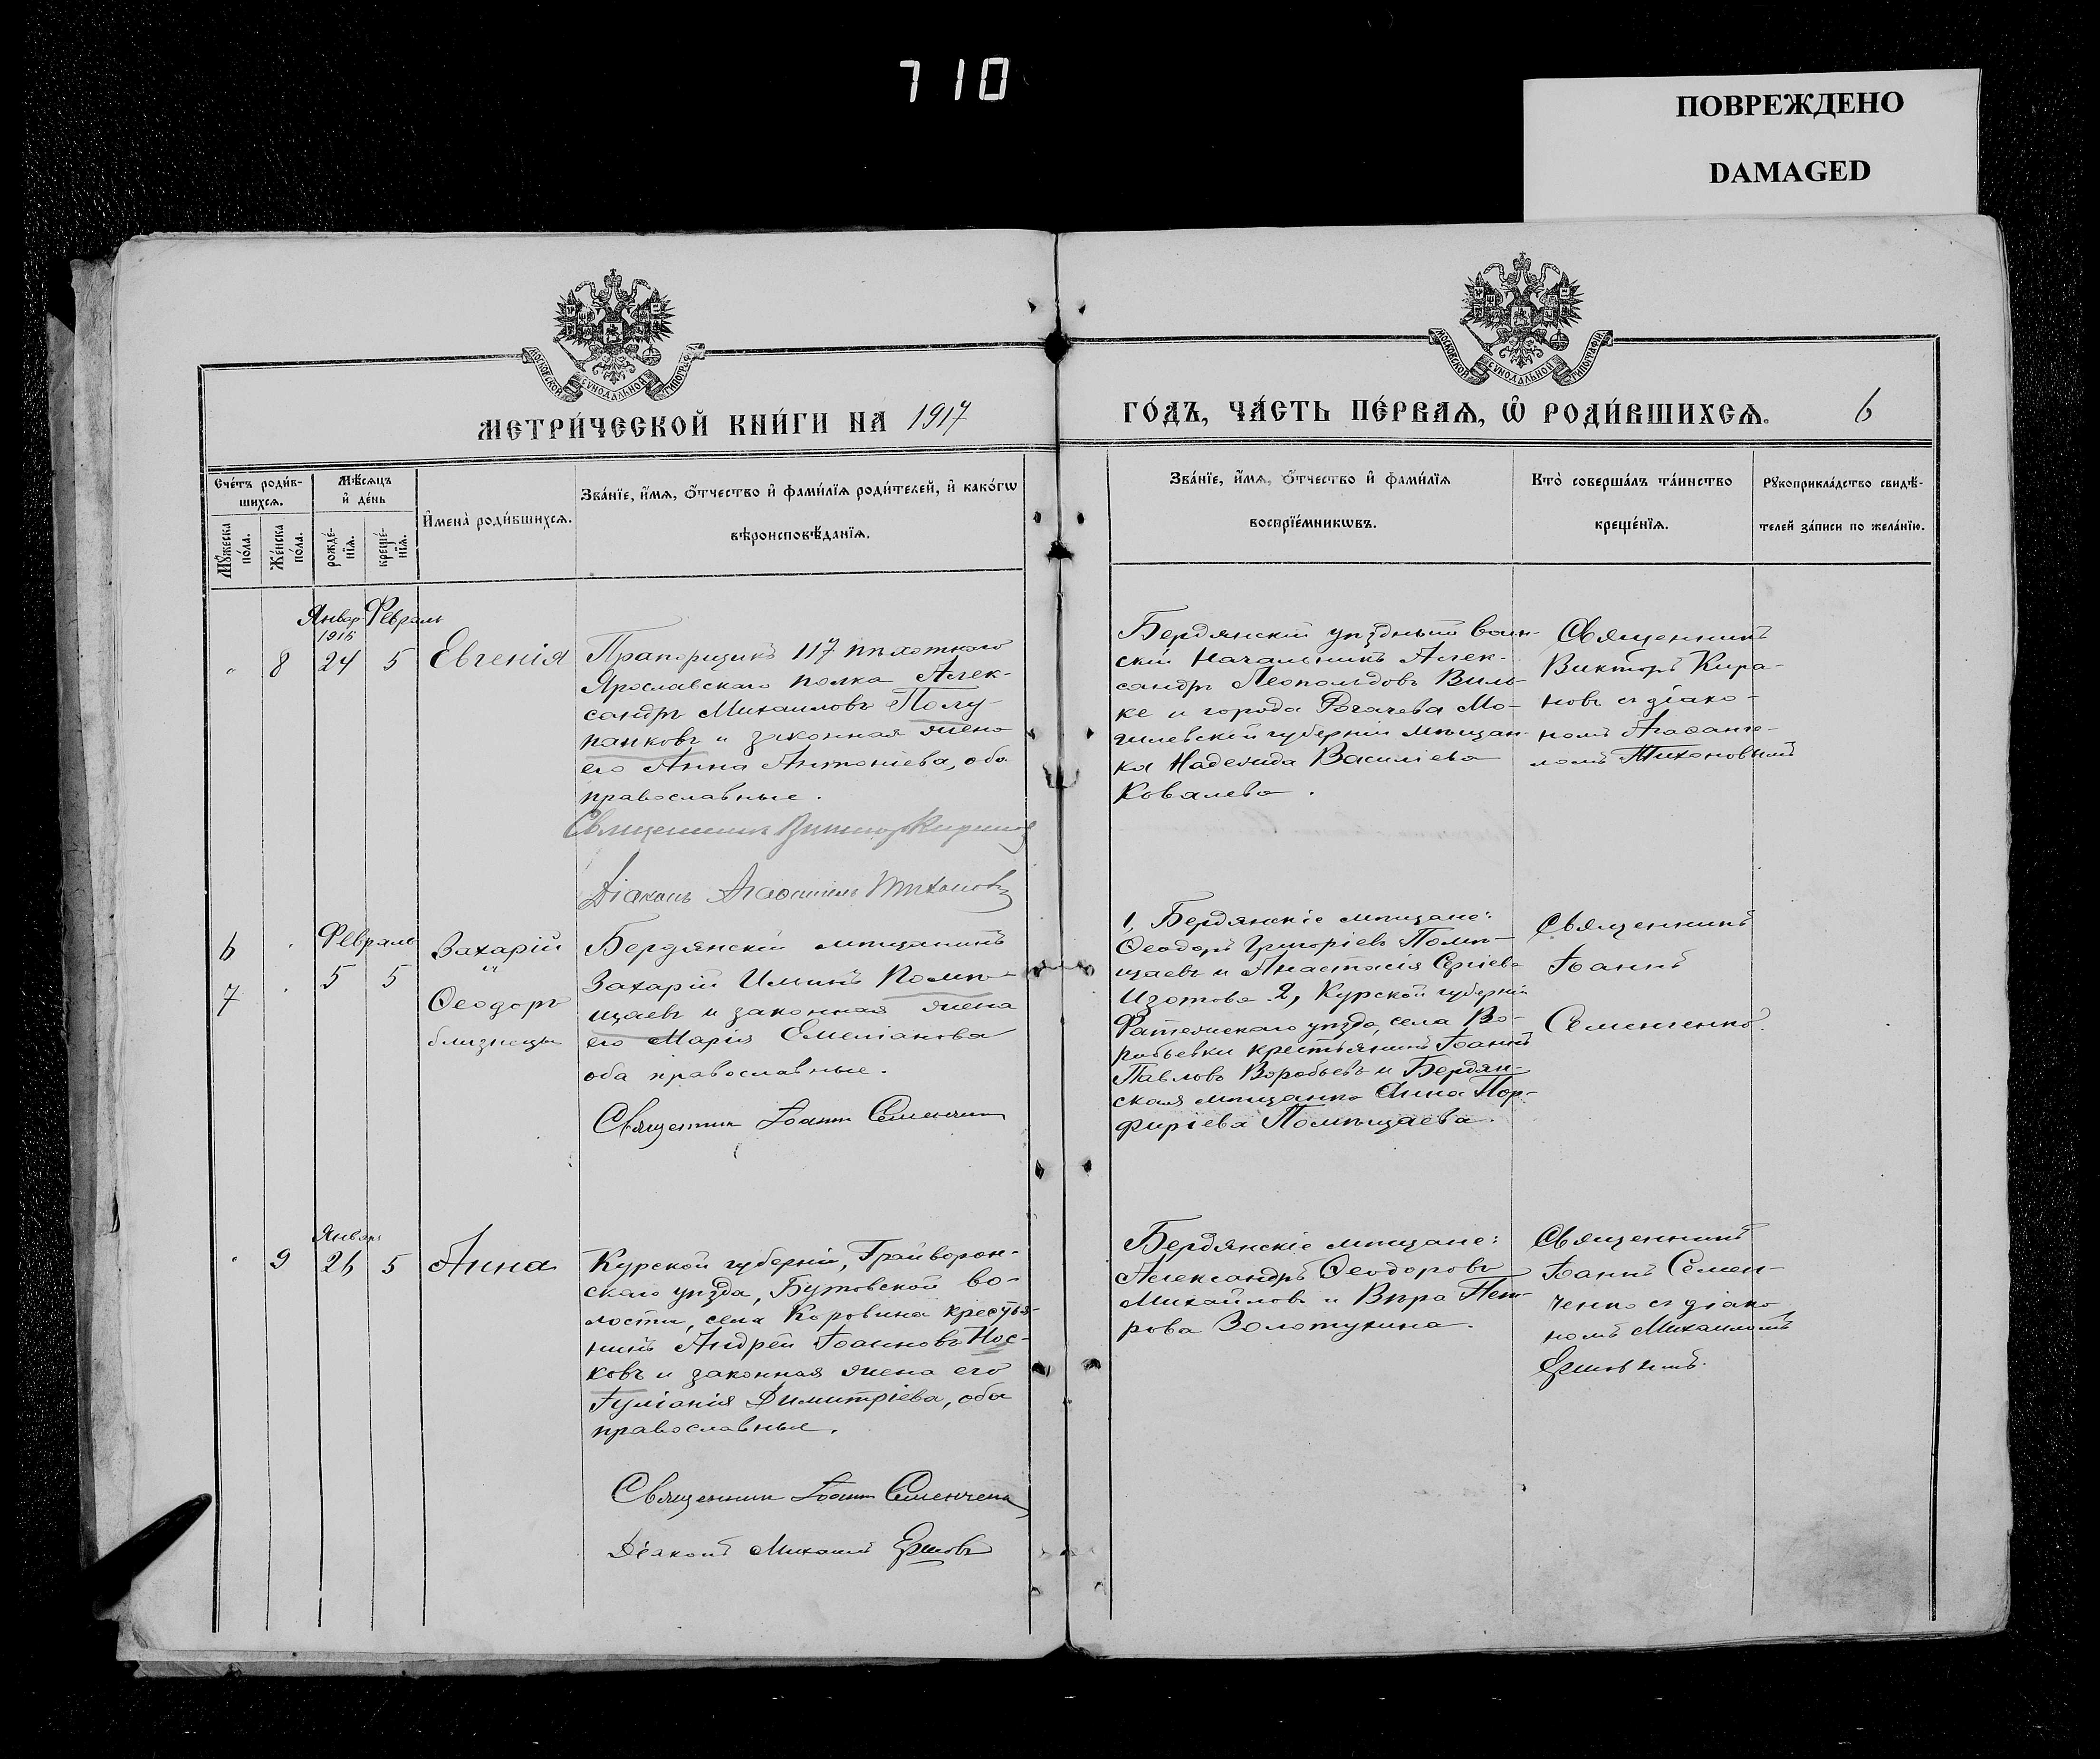 710
ПОВРЕЖДЕНО
DAMAGED
МОСКОВСКОЙ СѴНОДАЛЬНОЙ ТИПОГРАФІИ
МОСКОВСКОЙ СѴНОДАЛЬНОЙ ТИПОГРАФІИ
МЕТРИ́ЧЕСКОЙ КНИ́ГИ НА 1917
ГО́ДЪ, ЧА́СТЬ ПЕ́РВАѦ, Ѡ҆ РОДИ́ВШИХСѦ. 6
Сче́тъ роди́в-
шихсѧ.
Мꙋ́жеска по́ла.
Же́нска по́ла.
Мѣ́сѧцъ и҆ де́нь
рожде́-нїѧ.
креще́-нїѧ.
И҆мена̀ роди́вшихсѧ.
Зва́нїе, и҆́мѧ, ѻ҆́тчество и҆ фами́лїѧ роди́телей, и҆ како́гѡ
вѣроисповѣ́данїѧ.
Зва́нїе, и҆́мѧ, ѻ҆́тчество и҆ фами́лїѧ
воспрїе́мникѡвъ.
Кто̀ соверша́лъ та́инство
креще́нїѧ.
Рꙋкоприкла́дство свидѣ́-
телей за́писи по жела́нїю.
Январ Февраль
8 24 5 Евгенія
Прапорщикъ 117 пѣхотнаго
Ярославскаго полка Алек-
сандръ Михаиловъ Полу-
панковъ и законная жена
его Анна Антоніева, оба
православные.
Священникъ Викторъ Кирановъ
Діаконъ Агаѳангелъ Тихоновъ
Бердянскій уѣздный воин-
скій Начальникъ Алек-
сандръ Леопольдовъ Виль-
ке и города Рогачева Мо-
гилевской губерніи мѣщан-
ка Надежда Васильева
Ковалева.
Священникъ
Викторъ Кира-
новъ съ діако-
номъ Агаѳанге-
ломъ Тихоновымъ
6 Февраль
5 5
7
Захарій
и
Ѳеодоръ
близнецы
Бердянскій мѣщанинъ
Захарій Ильинъ Помѣ-
щаевъ и законная жена
его Марія Емеліанова
оба православные.
Священникъ Іоаннъ Семенченко
1, Бердянскіе мѣщане:
Ѳеодоръ Григоріевъ Помѣ-
щаевъ и Анастасія Сергіева
Изотова 2, Курской губерніи
Фатежскаго уѣзда, села Во-
робьевки крестьянинъ Іоаннъ
Павловъ Воробьевъ и Бердян-
ская мѣщанка Анна Пор-
фиріева Помѣщаева.
Священникъ
Іоаннъ
Семенченко.
Январь
9 26 5 Анна
Курской губерніи, Грайворон-
скаго уѣзда, Бутовской во-
лости, села Коровина крестья-
нинъ Андрей Іоанновъ Нос-
ковъ и законная жена его
Іуліанія Димитріева, оба
православные.
Священникъ Іоаннъ Семенченко
Діаконъ Михаилъ Ершовъ
Бердянскіе мѣщане:
Александръ Ѳеодоровъ
Михайловъ и Вѣра Пет-
рова Золотухина.
Священникъ
Іоаннъ Семен-
ченко съ діако-
номъ Михаиломъ
Ершовымъ.